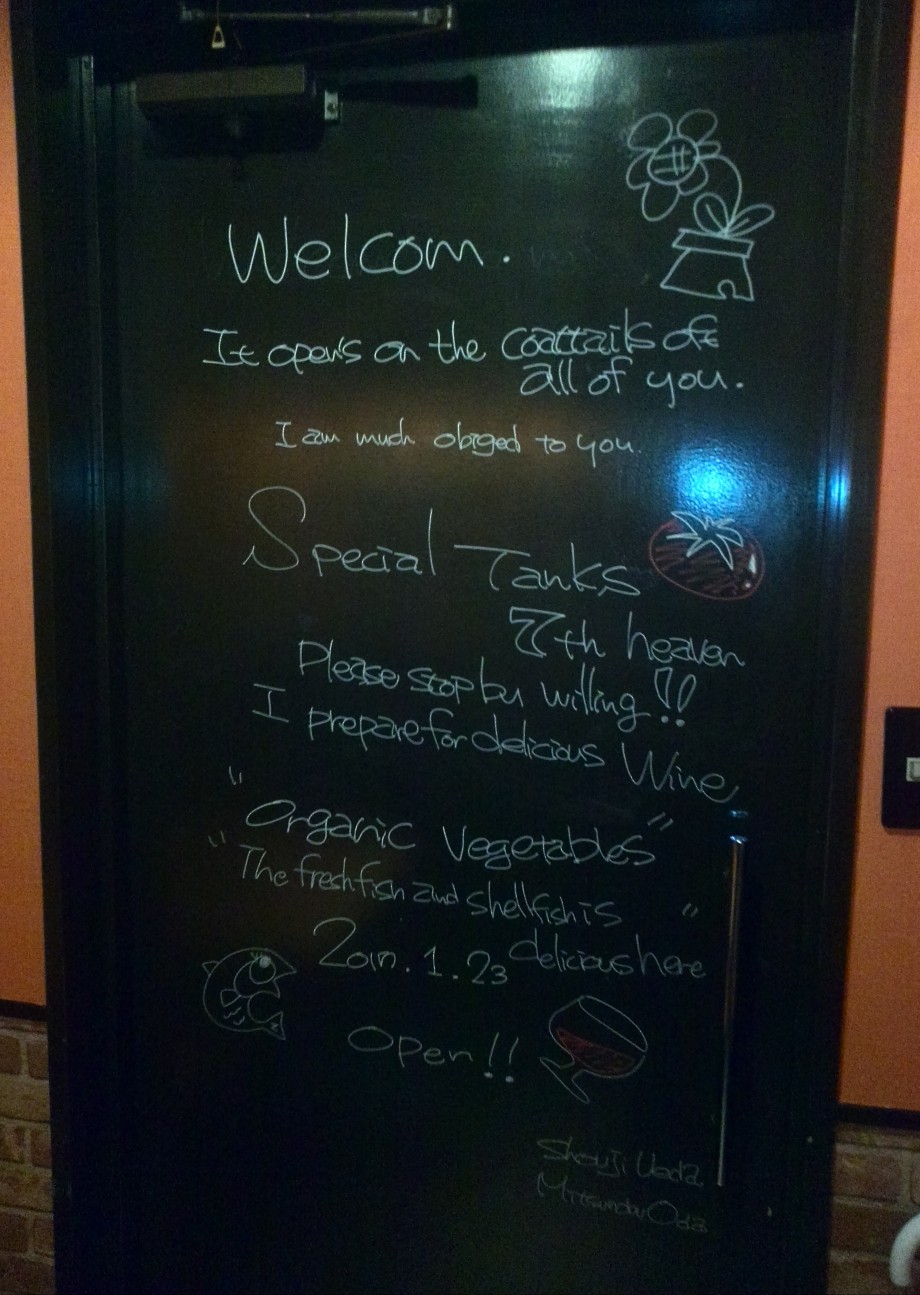 Welcom.
It open's on the coattails of
all of you.
I am much obrged to you.
Special Tanks
7th heaven
Please stop by willing!!
I prepare for delicious Wine
"Organic Vegetables"
"The fresh fish and shellfish is
delicious here"
2011.1.23
Open!!
Shouji Ueda
Oda